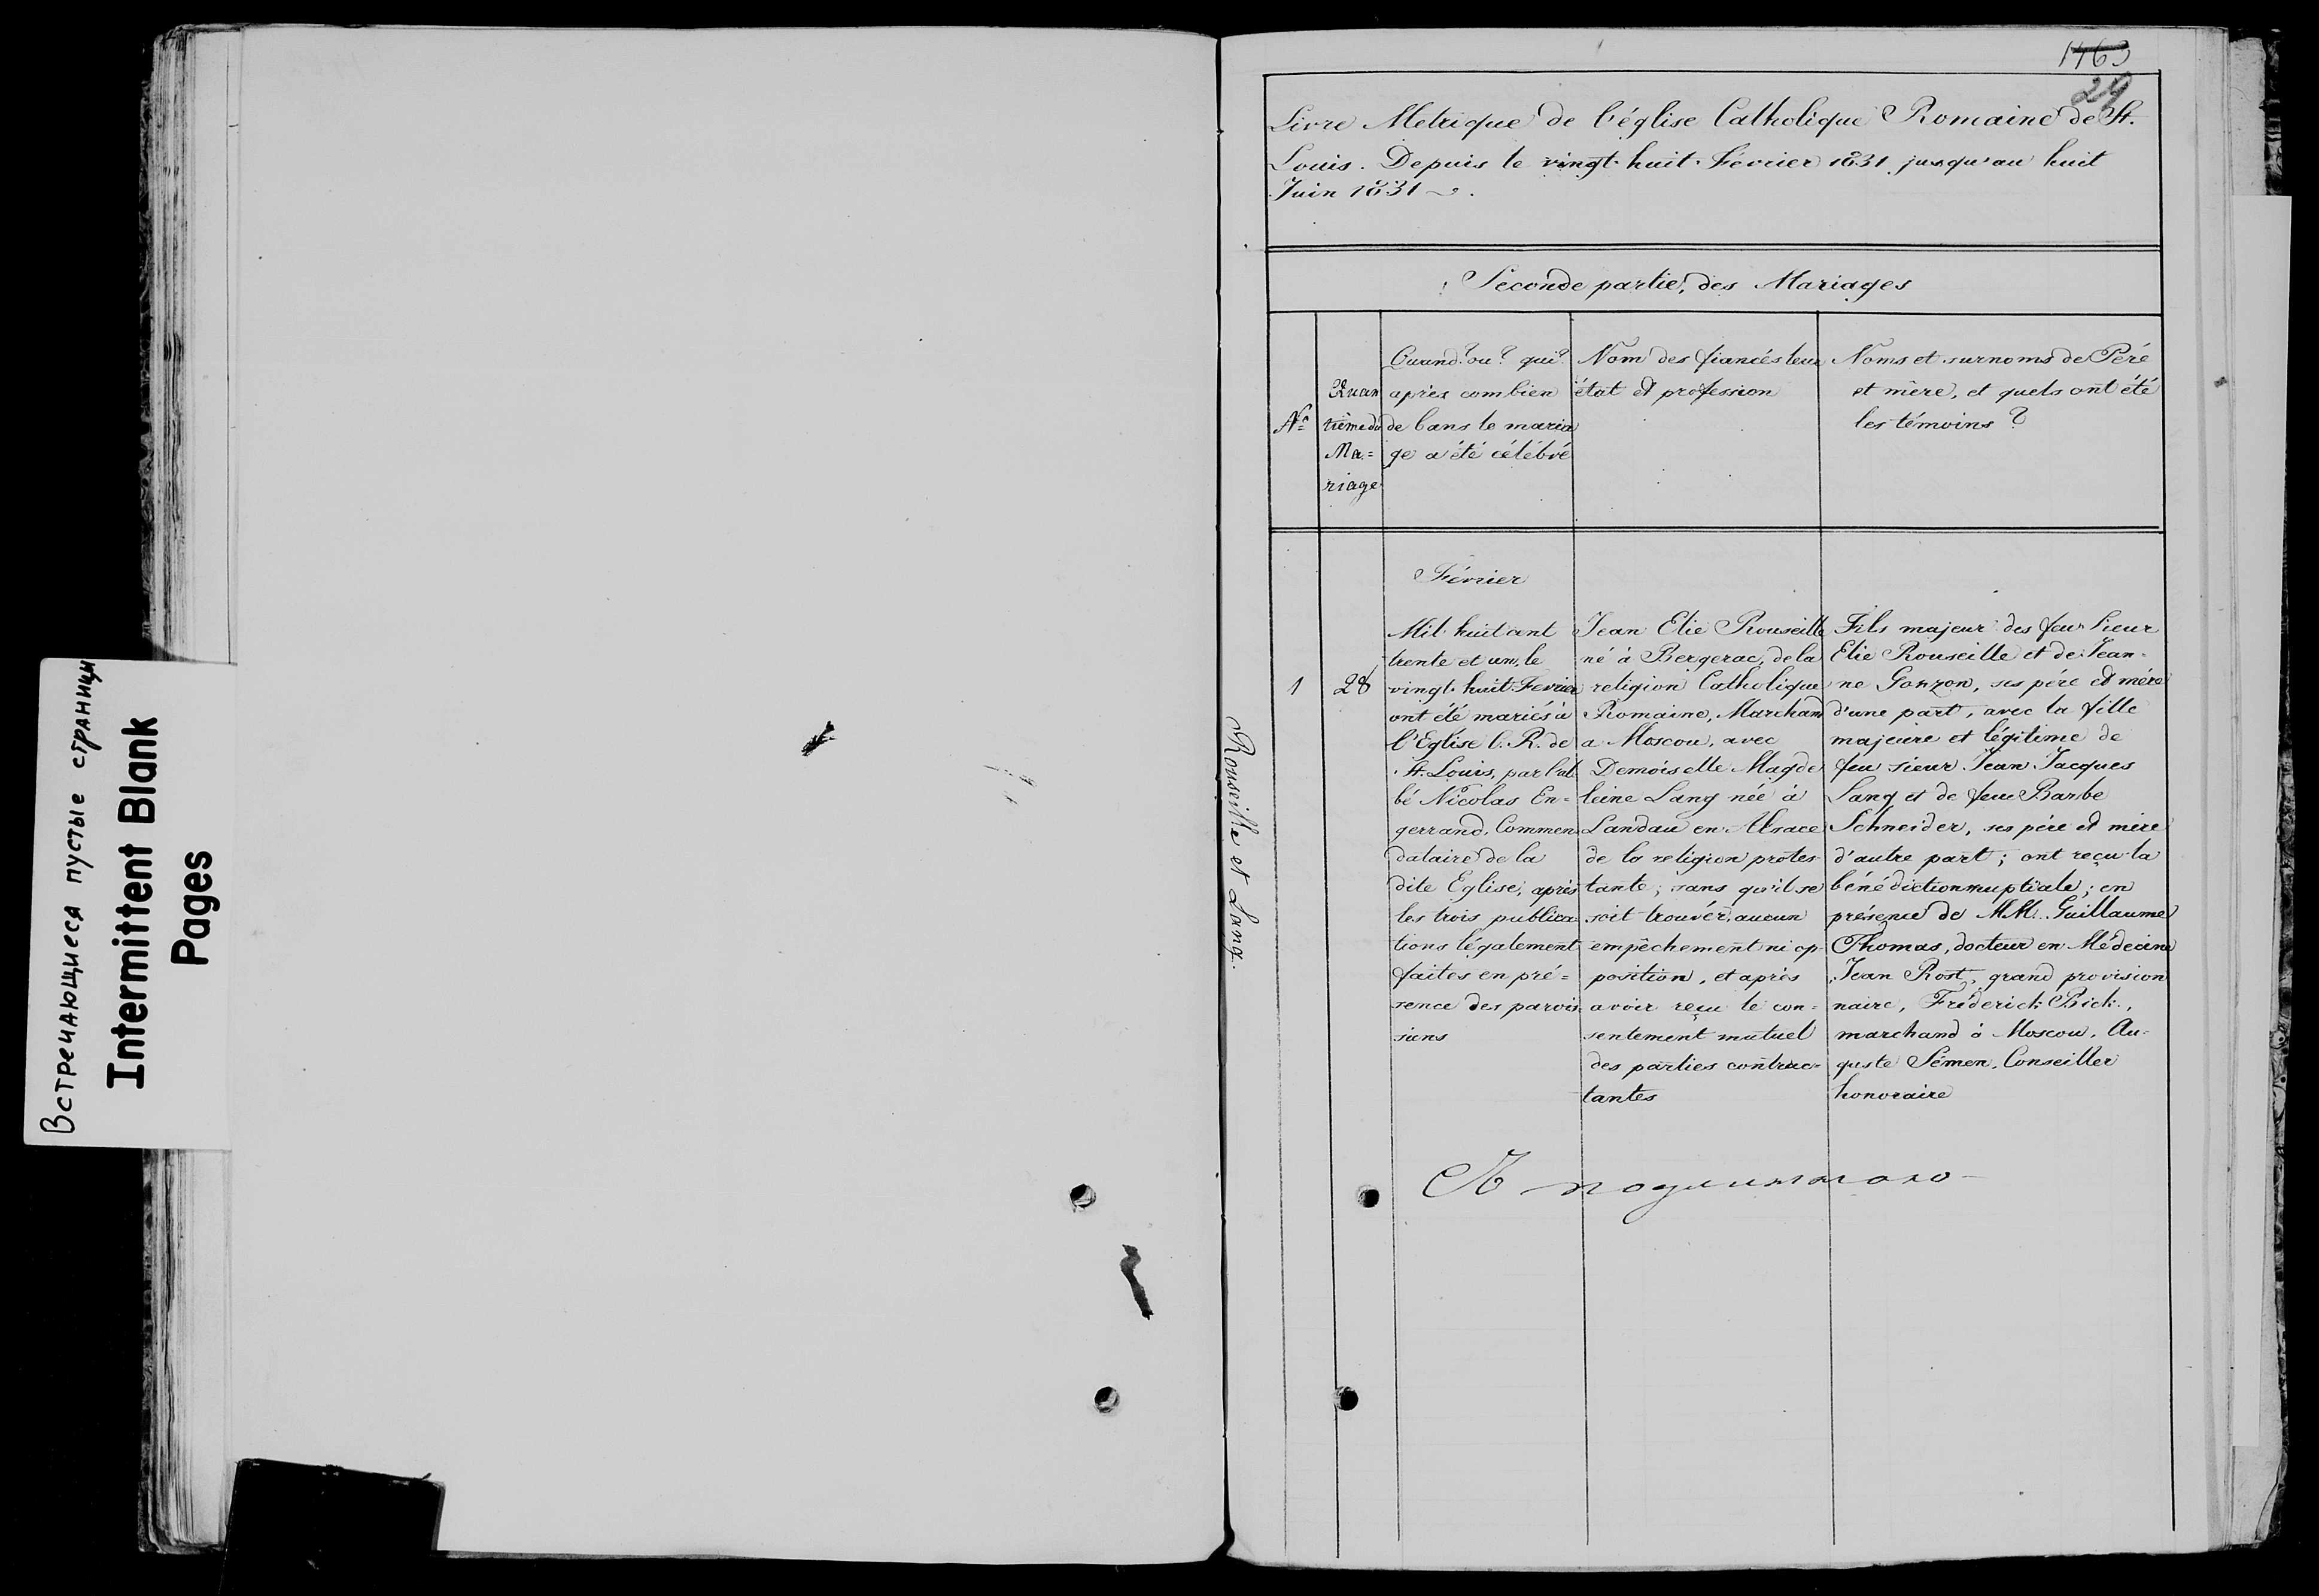 Встречающиеся пустые страницы
Intermittent Blank
Pages
1463
29
Livre Metrique de l'église Catholique Romaine de St.
Louis. Depuis le vingt-huit Février 1831 jusqu'au huit
Juin 1831
Seconde partie, des Mariages
No
Quan
tième du
Ma=
riage
Quand? ou? qui?
après combien
de bans le maria
ge a été célébré
Nom des fiancés leur
état et profession
Noms et surnoms de Péré
et mère, et quels ont été
les témoins ?
Rouseille et Lang.
1
28
Février
Mil huit cent
trente et un, le
vingt-huit Fevrier
ont été mariés à
l'Eglise C. R. de
St. Louis, par l'ab
bé Nicolas En=
gerrand, Commen
dataire de la
dite Eglise, après
les trois publica
tions légalement
faites en pré=
sence des parois
siens
Jean Elie Rouseille
né à Bergerac, de la
religion Catholique
Romaine, Marchand
a Moscou, avec
Demoiselle Magde
leine Lang née à
Landau en Alsace
de la religion protes
tante; sans qu'il se
soit trouvér aucun
empêchement ni op
position, et après
avoir reçu le con=
sentement mutuel
des parties contrac=
tantes
Fils majeur des feu Sieur
Elie Rouseille et de Jean=
ne Gonzon, ses pére et mére
d'une part, avec la fille
majeure et légitime de
feu sieur Jean Jacques
Lang et de feue Barbe
Schneider, ses pére et mère
d'autre part; ont reçu la
bénédiction nuptiale; en
présence de MM. Guillaume
Thomas, docteur en Médecine
Jean Rost, grand provision
naire, Fréderick Bick,
marchand à Moscou, Au=
guste Sémen, Conseiller
honoraire